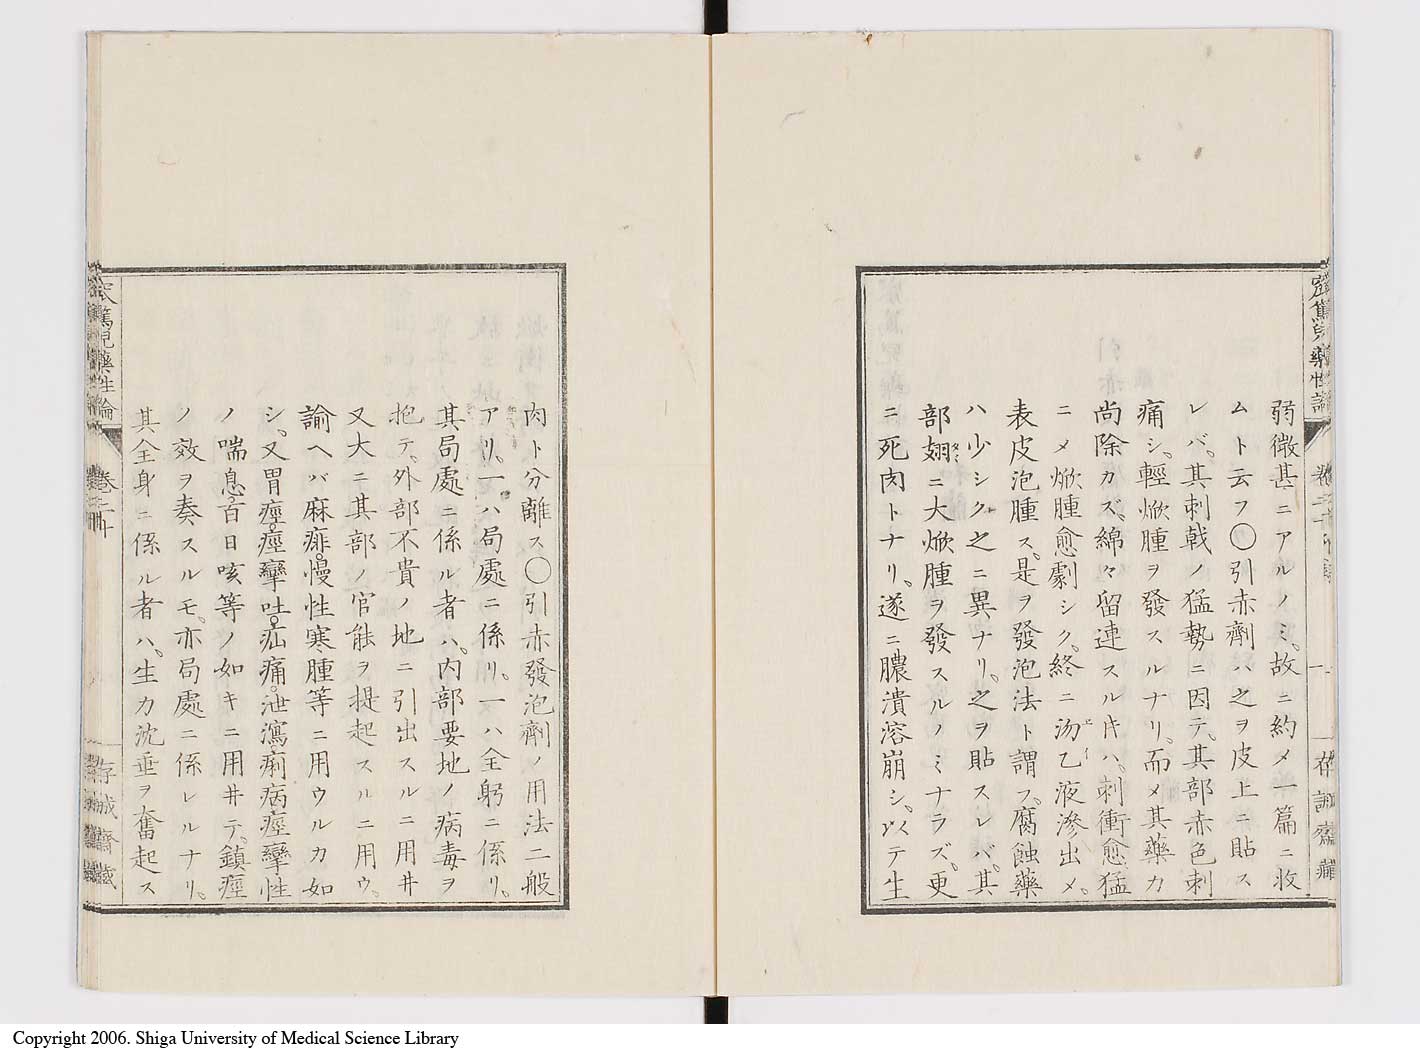 弱微甚ニアルノミ。故ニ約メ一篇ニ收
ムト云フ〇引赤劑ハ之ヲ皮上ニ貼ス
レバ。其刺戟ノ猛勢ニ因テ。其部赤色刺
痛シ。輕焮腫ヲ發スルナリ。而メ其藥力
尚除カズ。綿々留連スル𪜈ハ。刺衝愈猛
ニメ焮腫愈劇シク。終ニ沕乙液滲出メ。
表皮泡腫ス。是ヲ發泡法ト謂フ。腐蝕藥
ハ少シク之ニ異ナリ。之ヲ貼スレバ。其
部翅ニ大焮腫ヲ發スルノミナラズ。更
ニ死肉トナリ。遂ニ膿潰溶崩シ。以テ生
肉ト分離ス〇引赤發泡劑ノ用法二般
アリ。一ハ局處ニ係リ。一ハ全躬ニ係リ。
其局處ニ係ル者ハ。内部要地ノ病毒ヲ
抱テ。外部不貴ノ地ニ引出スルニ用井
又大ニ其部ノ官能ヲ提起スルニ用ウ。
諭ヘバ麻痱。慢性寒腫等ニ用ウルカ如
シ。又胃痙。痙攣吐。疝痛。泄瀉。痢病。痙攣性
ノ喘息。百日咳等ノ如キニ用井テ。鎮痙
ノ效ヲ奏スルモ。亦局處ニ係レルナリ。
其全身ニ係ル者ハ。生力沈垂ヲ奮起ス
窊篤兒藥性論
卷二十
存誠齋藏
Copyright 2006. Shiga University of Medical Science Library